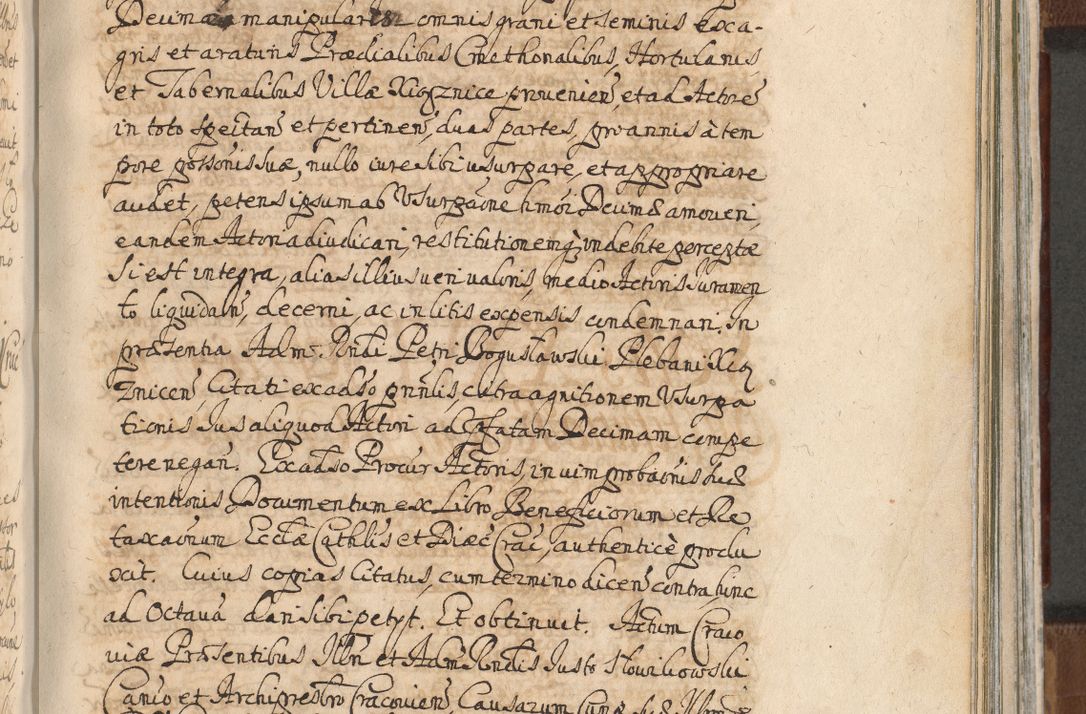 Decimas manipulares omnis grani et seminis ex a-
gris et araturis Prædialibus Cmethonalibus, Hortulanis,
et Tabernalibus Villæ Xiąznice provenien̄, et ad Actorē
in toto spectan̄ et pertinen̄, duas partes, pro annis à tem
pore possōnis suæ, nullo iure sibi usurpare, et appropriare
audet, petens ipsum ab Usurpãone hmōi Decimæ amoveri,
eandem Actori adiudicari, restitutionemq̧ indebite perceptæ
si est integra, alias illius veri valoris, medio Actoris Iuramen
to liquidan̄, decerni, ac in litis expensis condemnari. In
præsentia Adm. Rndi Petri Bogusławski Plebani Xią
znicen̄, Citati ex adṽso pñlis, citra agnitionem Usurpa
tionis Ius aliquod Actori ad p̃fatam Decimam compe
tere negan̄. Ex adṽso Procur Actoris, in vim probãonis suæ
intentionis Documentum ex Libro Beneficiorum et Re
taxãonum Ecclæ Cathlis et Diæc̄ Crac̄, authenticè produ
xit. Cuius copias Citatus, cum termino dicen̄ contra hinc
ad Octavā dari sibi petyt. Et obtinuit. Actum Craco
viæ Præsentibus Illri et Adm Rndis Iusto Słowikowski
Canco et Archipresbro Cracovien̄ Causarum